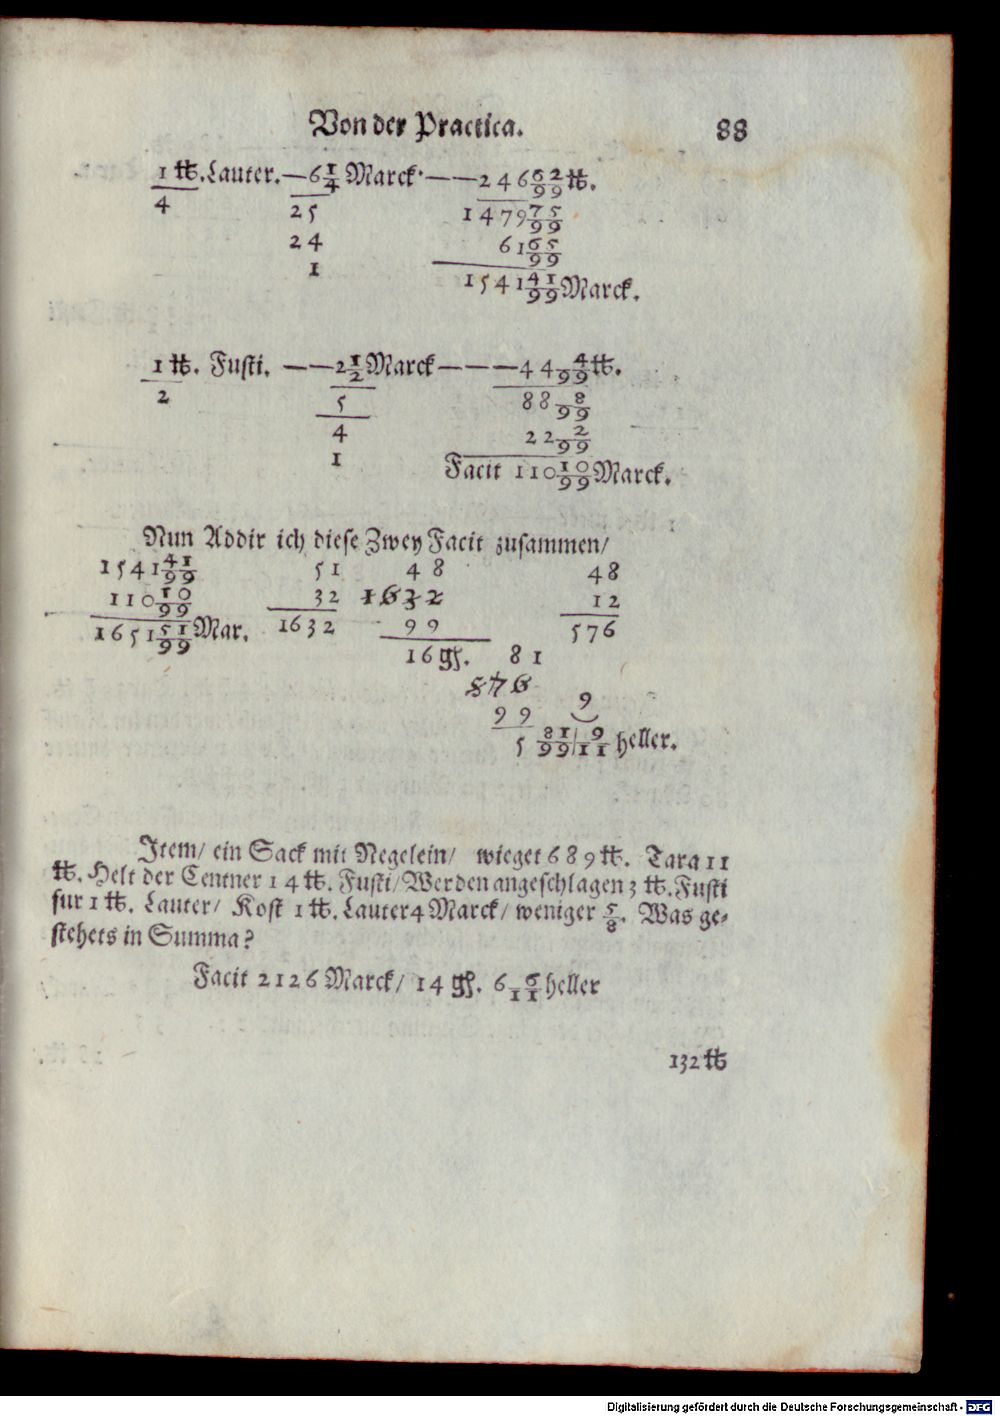 Von der Practica. 88
1 ℔. Lauter. — 6 1/4 Marck — — 246 62/99 ℔.
4 25 1479 75/99
24 61 65/99
1 1541 41/99 Marck.
1 ℔. Fusti. — — 2 1/2 Marck — — — 44 4/99 ℔.
2 5 88 8/99
4 22 2/99
1 Facit 110 10/99 Marck.
Nun Addir ich diese Zwey Facit zusammen/
1541 41/99 51 48 48
110 10/99 32 1632 12
1651 51/99 Mar. 1632 99 576
16 gß. 81
576
99 9
5 81/99 | 9/11 heller.
Item/ ein Sack mit Negelein/ wieget 689 ℔. Tara 11
℔. Helt der Centner 14 ℔. Fusti/ Werden angeschlagen 3 ℔. Fusti
fur 1 ℔. Lauter/ Kost 1 ℔. Lauter 4 Marck/ weniger 5/8. Was ge-
stehets in Summa?
Facit 2126 Marck/ 14 gß. 6 6/11 heller
132 ℔
Digitalisierung gefördert durch die Deutsche Forschungsgemeinschaft - DFG